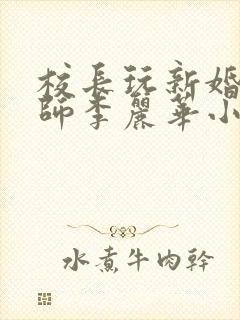 校長玩新婚
師李麗華小
水煮牛肉幹